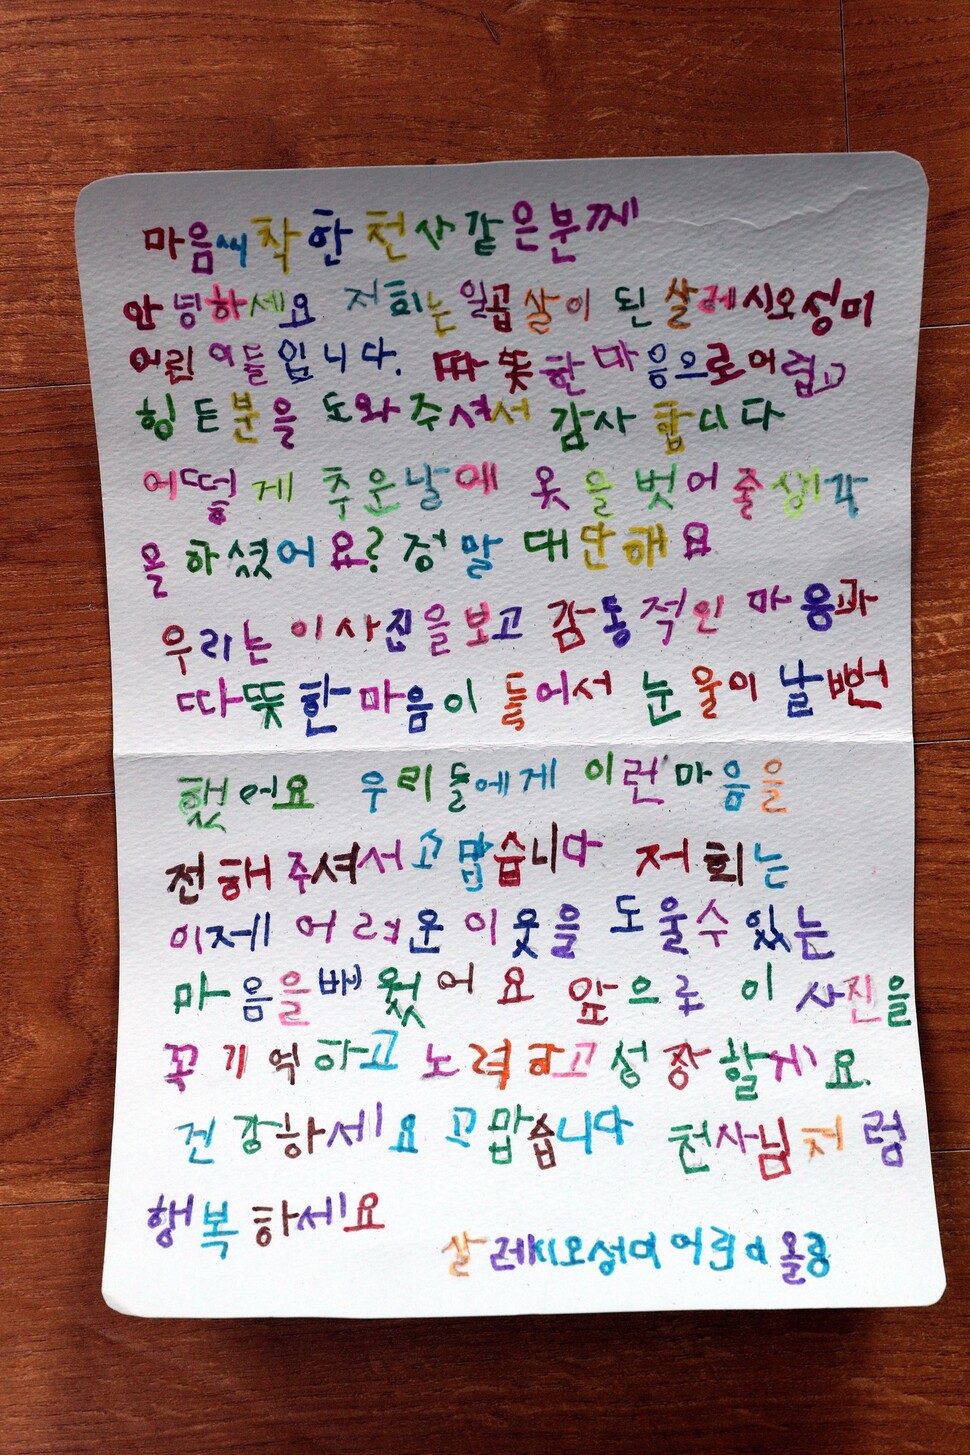 마음씨 착한 천사같은분께
안녕하세요 저희는 일곱살이 된 살레시오성미
어린이들입니다. 따뜻한 마음으로 어렵고
힝든분을 도와주셔서 감사합니다
어떻게 추운날에 옷을 벗어줄생각
을 하셨어요? 정말 대단해요
우리는 이사진을보고 감동적인 마음과
따뜻한마음이 들어서 눈물이 날뻔
했어요 우리들에게 이런마음을
전해주셔서고맙습니다 저희는
이제 어려운 이웃을 도울수 있는
마음을배웠어요 앞으로 이 사진을
꼭 기억하고 노력하고 성장할게요.
건강하세요 고맙습니다 천사님처럼
행복하세요
살레시오성미 어린이 올림